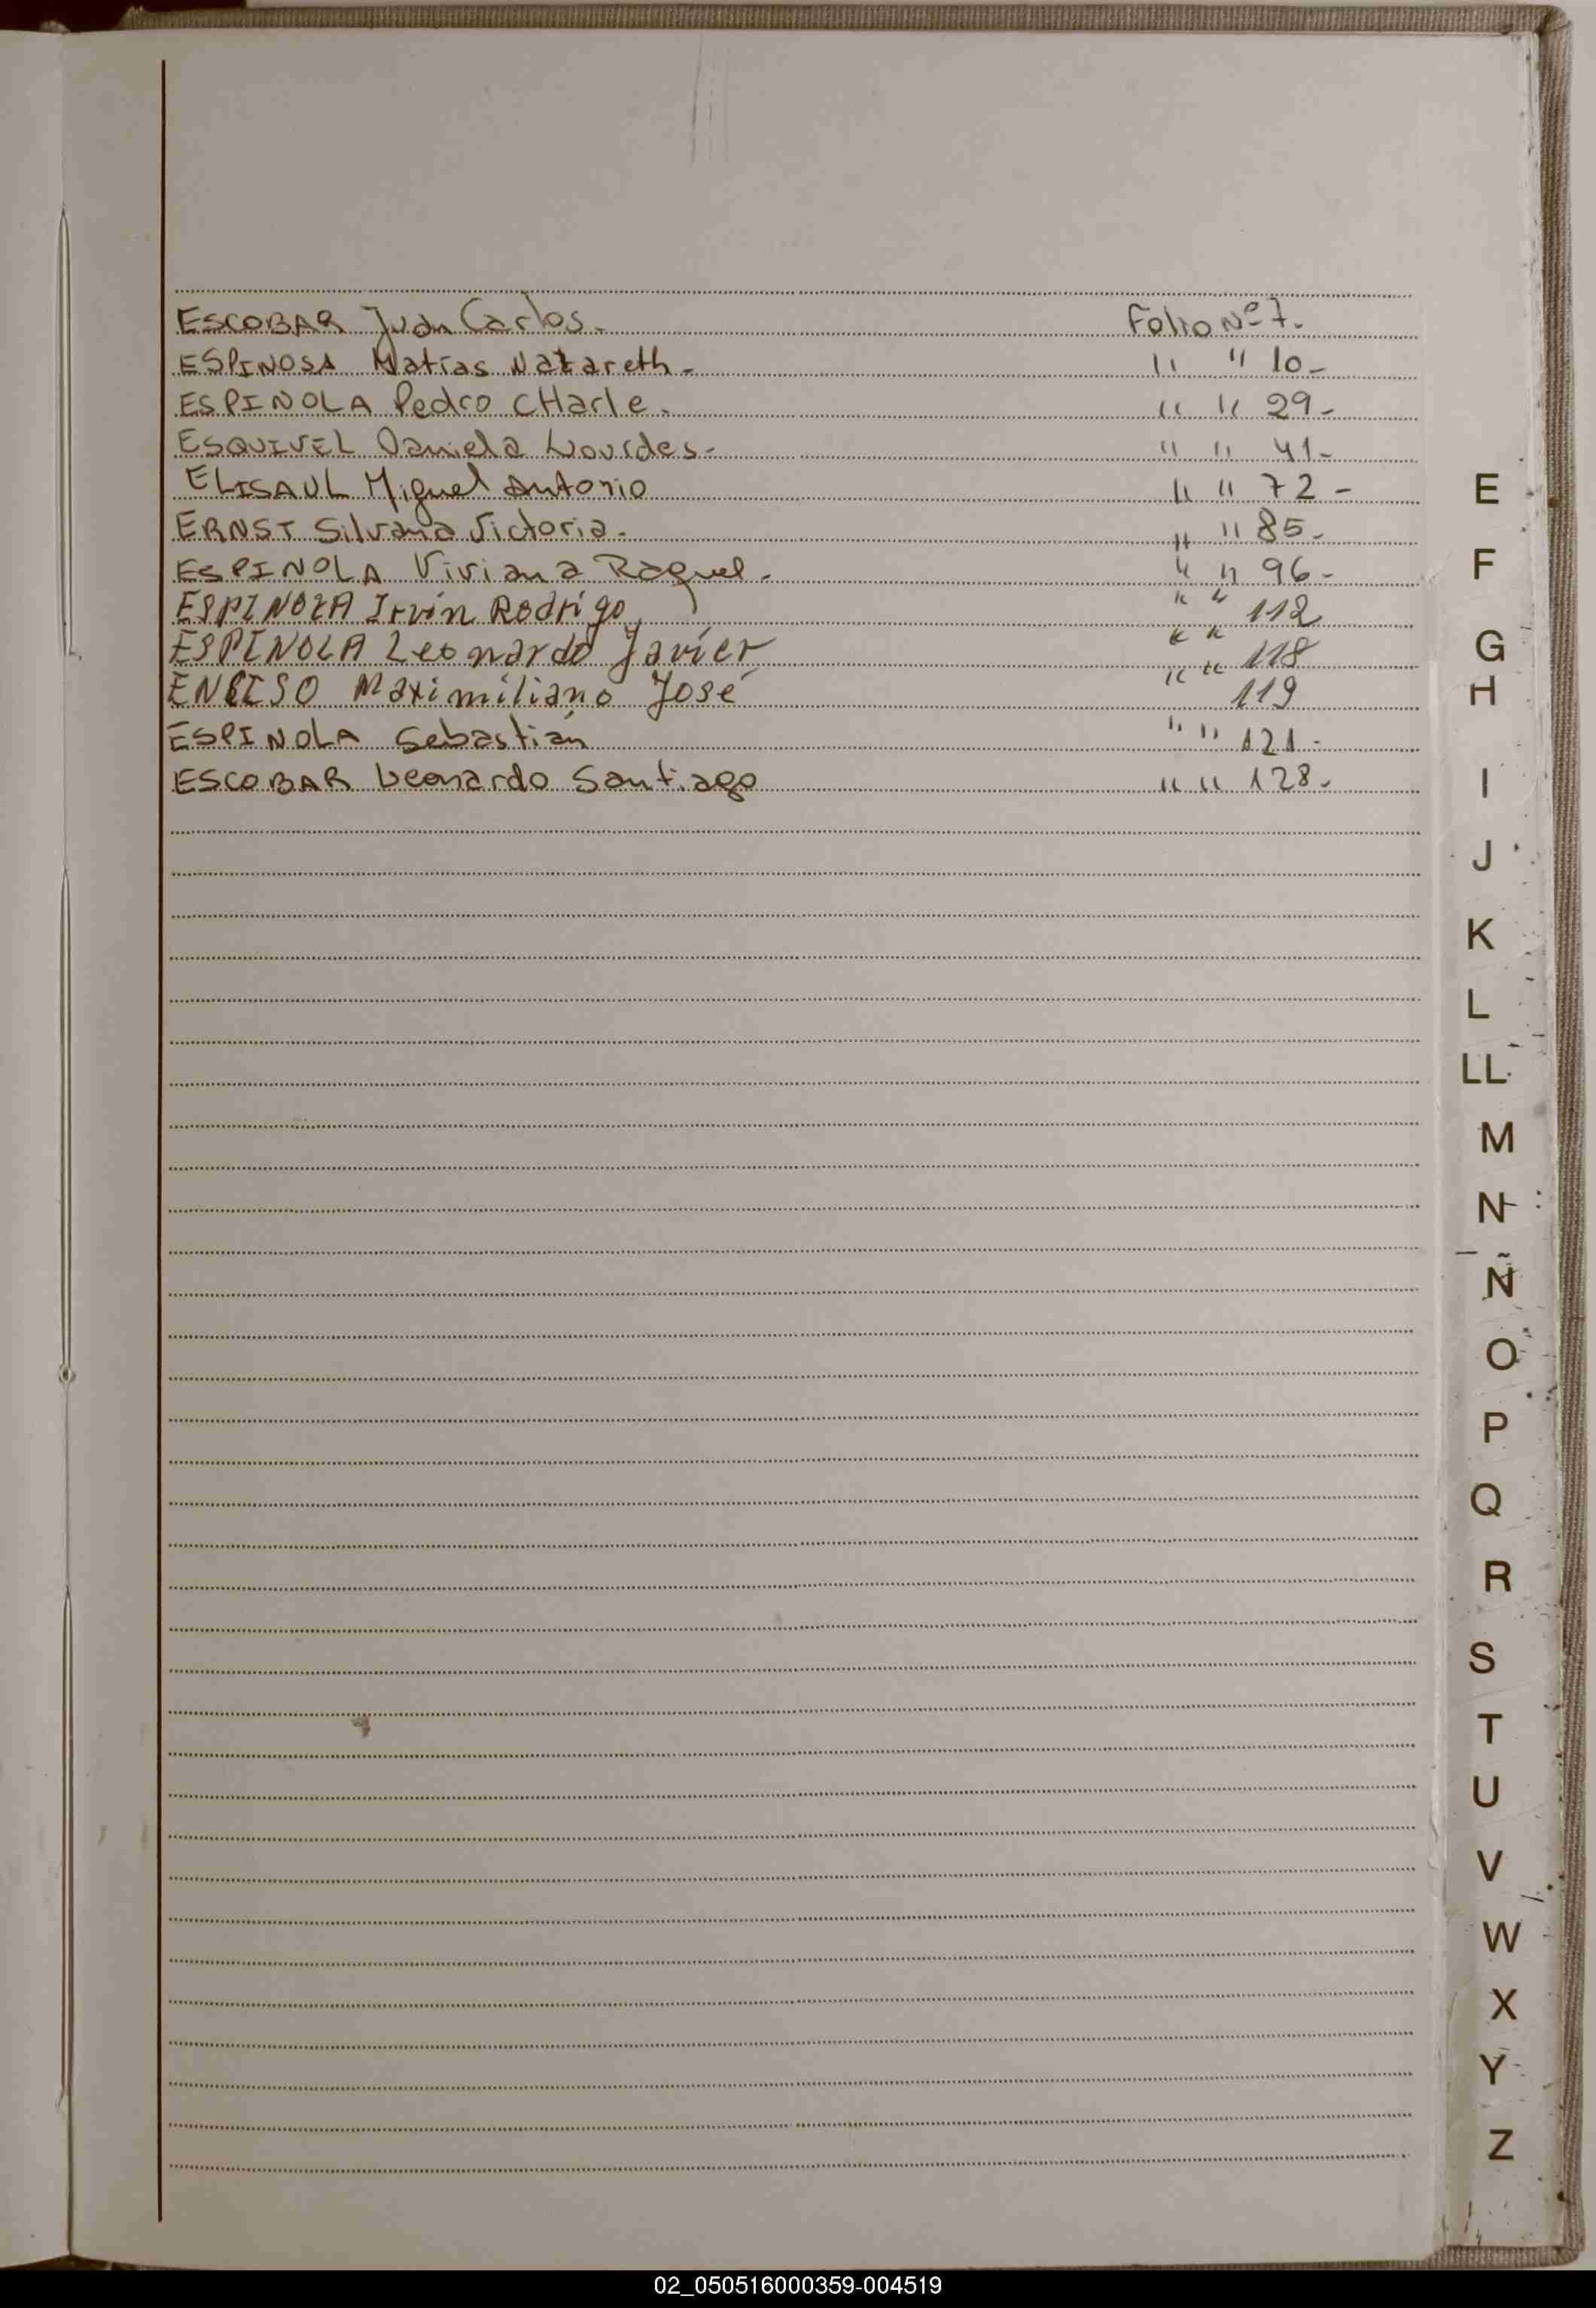 ESCOBAR Juan Carlos.- Folio Nº 7.-
ESPINOSA Matías Nazareth.- " " 10.-
ESPINOLA Pedro CHarle.- " " 29.-
ESQUIVEL Daniela Lourdes.- " " 41.-
ELISAUL Miguel Antonio " " 72 -
ERNST Silvana Victoria.- " " 85.-
ESPINOLA Viviana Raquel.- " " 96-
ESPINOZA Irvin Rodrigo " " 112
ESPINOLA Leonardo Javier " " 118
ENCISO Maximiliano José " " 119
ESPINOLA Sebastián " " 121-
ESCOBAR Leonardo Santiago " " 128.-
E
F
G
H
I
J
K
L
LL
M
N
Ñ
O
P
Q
R
S
T
U
V
W
X
Y
Z
02_050516000359-004519